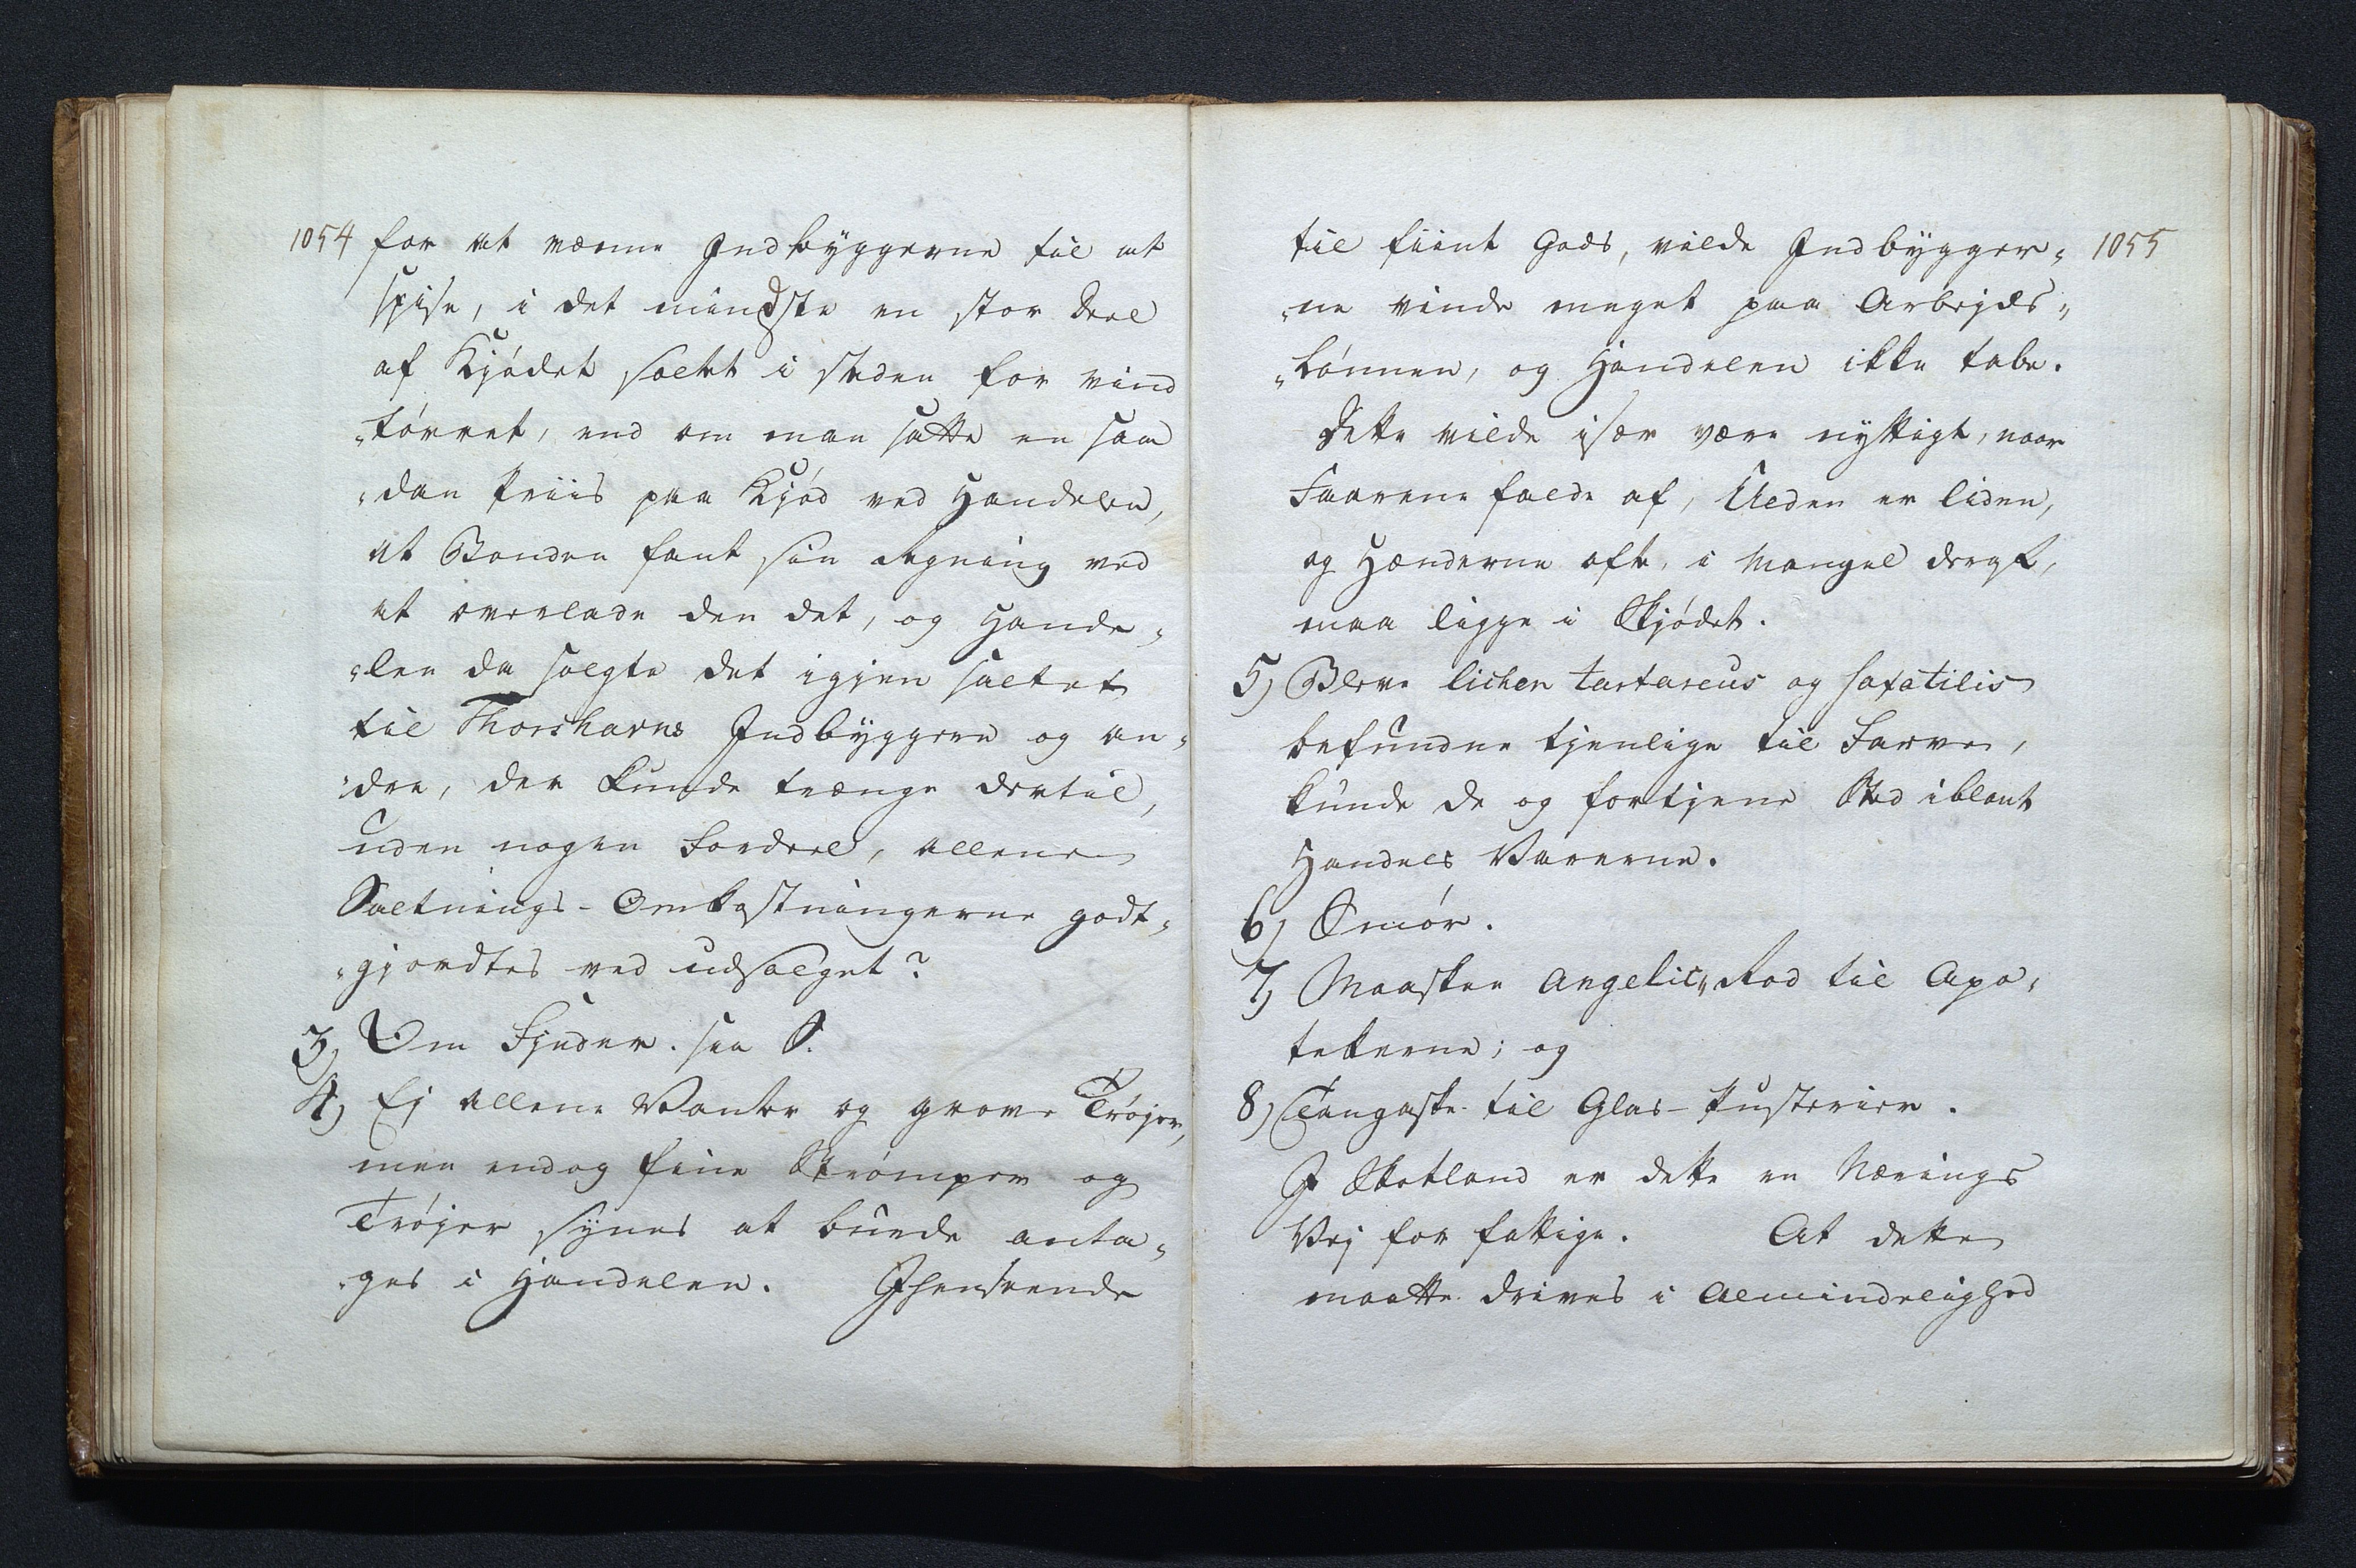 1054
for at vænne Indbyggerne til at
spise, i det mindste en stor Deel
af Kjødet saltet i steden for vind
„tørret, end om man satte en saa
„dan Priis paa Kjød ved Handelen,
at Bonden fant sin Regning ved
at overlade den det, og Hande„
„len da solgte det igjen saltet
til Thorshavns Indbyggere og an„
„dre, der kunde trænge dertil,
uden nogen Fordeel, allene
Saltnings-Omkostningerne godt„
„gjordtes ved udsalget?
3) Om Fjeder. see S.
4) Ej allene Vanter og grove Trøjer,
men endog fine Strømper og
Trøjer synes at burde anta„
„ges i Handelen. Ihenseende
1055
til fiint Gods, vilde Indbygger„
„ne vinde meget paa Arbejds„
„Lønnen, og Handelen ikke tabe.
Dette vilde især være nyttigt, naar
Faarene falde af, Ulden er liden,
og Hænderne ofte, i Mangel deraf,
maa ligge i Skjødet.
5) Bleve lichen tartareus og saxatilis
befundne tjenlige til Farve,
kunde de og fortjene Sted iblant
Handels Varerne.
6) Smør.
7) Maaskee Angelic„ Rod til Apo„
tekerne; og
8) Tangaske til Glas-Pusterier.
I Skotland er dette en Nærings
Vej for fattige. At dette
maatte drives i Almindelighed